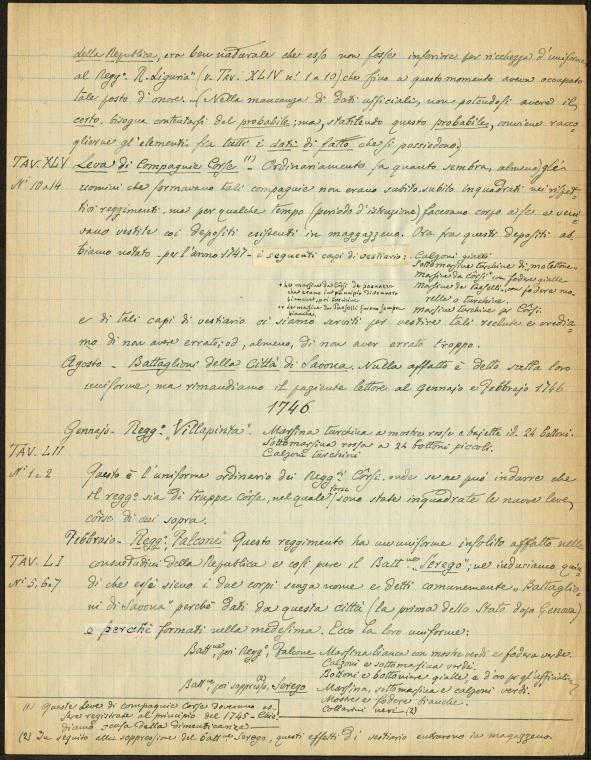 della Republica, era ben naturale che esso non fosse inferiore per ricchezza d'uniforme
al Regg.º R. Liguria" (v. TAV. XLIV nⁱ 1 a 10) che fino a questo momento aveva occupato
tale posto d'onore. - (Nella mancanza di dati ufficiali, non potendosi avere il
certo, bisogna contentarsi del probabile; ma, stabilendo questo probabile, conviene racco=
glierne gl'elementi fra tutti i dati di fatto che si possiedono)
TAV. XLV Leva di Compagnie Corse (1) - Ordinariamente (a quanto sembra, almeno) gli
Nⁱ 10 a 14 uomini che formavano tali compagnie non erano subito, subito inquadrati nei rispet=
tivi reggimenti, ma per qualche tempo (periodo d'istruzione) facevano corpo a se e veni=
vano vestite coi depositi esistenti in magazzeno. Ora fra questi depositi ab=
biamo notato - per l'anno 1747 - i seguenti capi di vestiario: Calzoni gialli
Sottomarsine turchine di "molettone"
Marsine da Côrsi + con fodere gialle
Marsine da Paeselli, con fodere
turchine.
Marsine turchine per Côrsi.
+ Le marsine da Côrsi
che erano in principio
bianche, poi turchine
bianche.
e di tali capi di vestiario ci siamo serviti per vestire tali reclute e credia=
mo di non avere errato; od, almeno, di non aver errato troppo.
Agosto - Battaglioni della Città di Savona. Nulla affatto è detto sulla loro
uniforme, ma rimandiamo il paziente lettore al Gennajo e Febbrajo 1746
1746
Gennajo - Regg.º "Villapinta". Marsina turchina a mostre rosse e bajetta id. 24 bottoni.
Sottomarsina rossa a 24 bottoni piccoli.
TAV. LII Calzoni turchini
Nⁱ 1 e 2 Questo è l'uniforme ordinario dei Regg.ⁱ Côrsi, onde se ne può indurre che
il regg.º sia di truppa Côrsa, nel quale forse sono state inquadrate le nuove leve
côrse di cui sopra.
Febbraio - Regg.º "Falcone" Questo reggimento ha un uniforme insolito affatto nelle
TAV. LI consuetudini della Republica e così pure il Batt.ⁿᵉ "Serego"; ne induciamo quin=
Nⁱ 5, 6 e 7 di che essi sieno i due corpi senza nome e detti comunemente "Battaglio=
ni di Savona" perchè dati da questa città (la prima dello Stato dopo Genova)
e perchè formati nella medesima. Ecco la loro uniforme:
Batt.ⁿᵉ, poi Regg.º, Falcone Marsina bianca con mostre verdi e fodera verde.
Calzoni e sottomarsina verdi.
Bottoni e bottoniere gialle, e d'oro per gl'uffiziali.
Batt.ⁿᵉ, poi soppresso, (2) Serego Marsina, sottomarsina e calzoni verdi.
Mostre e fodere bianche.
Collarini neri (2)
(1) Queste Leve di compagnie Corse dovevano es=
sere registrate al principio del 1745 - Chie=
diamo scusa della dimenticanza
(2) In seguito alla soppressione del batt.ⁿᵉ Serego, questi effetti di vestiario entrarono in magazzeno.